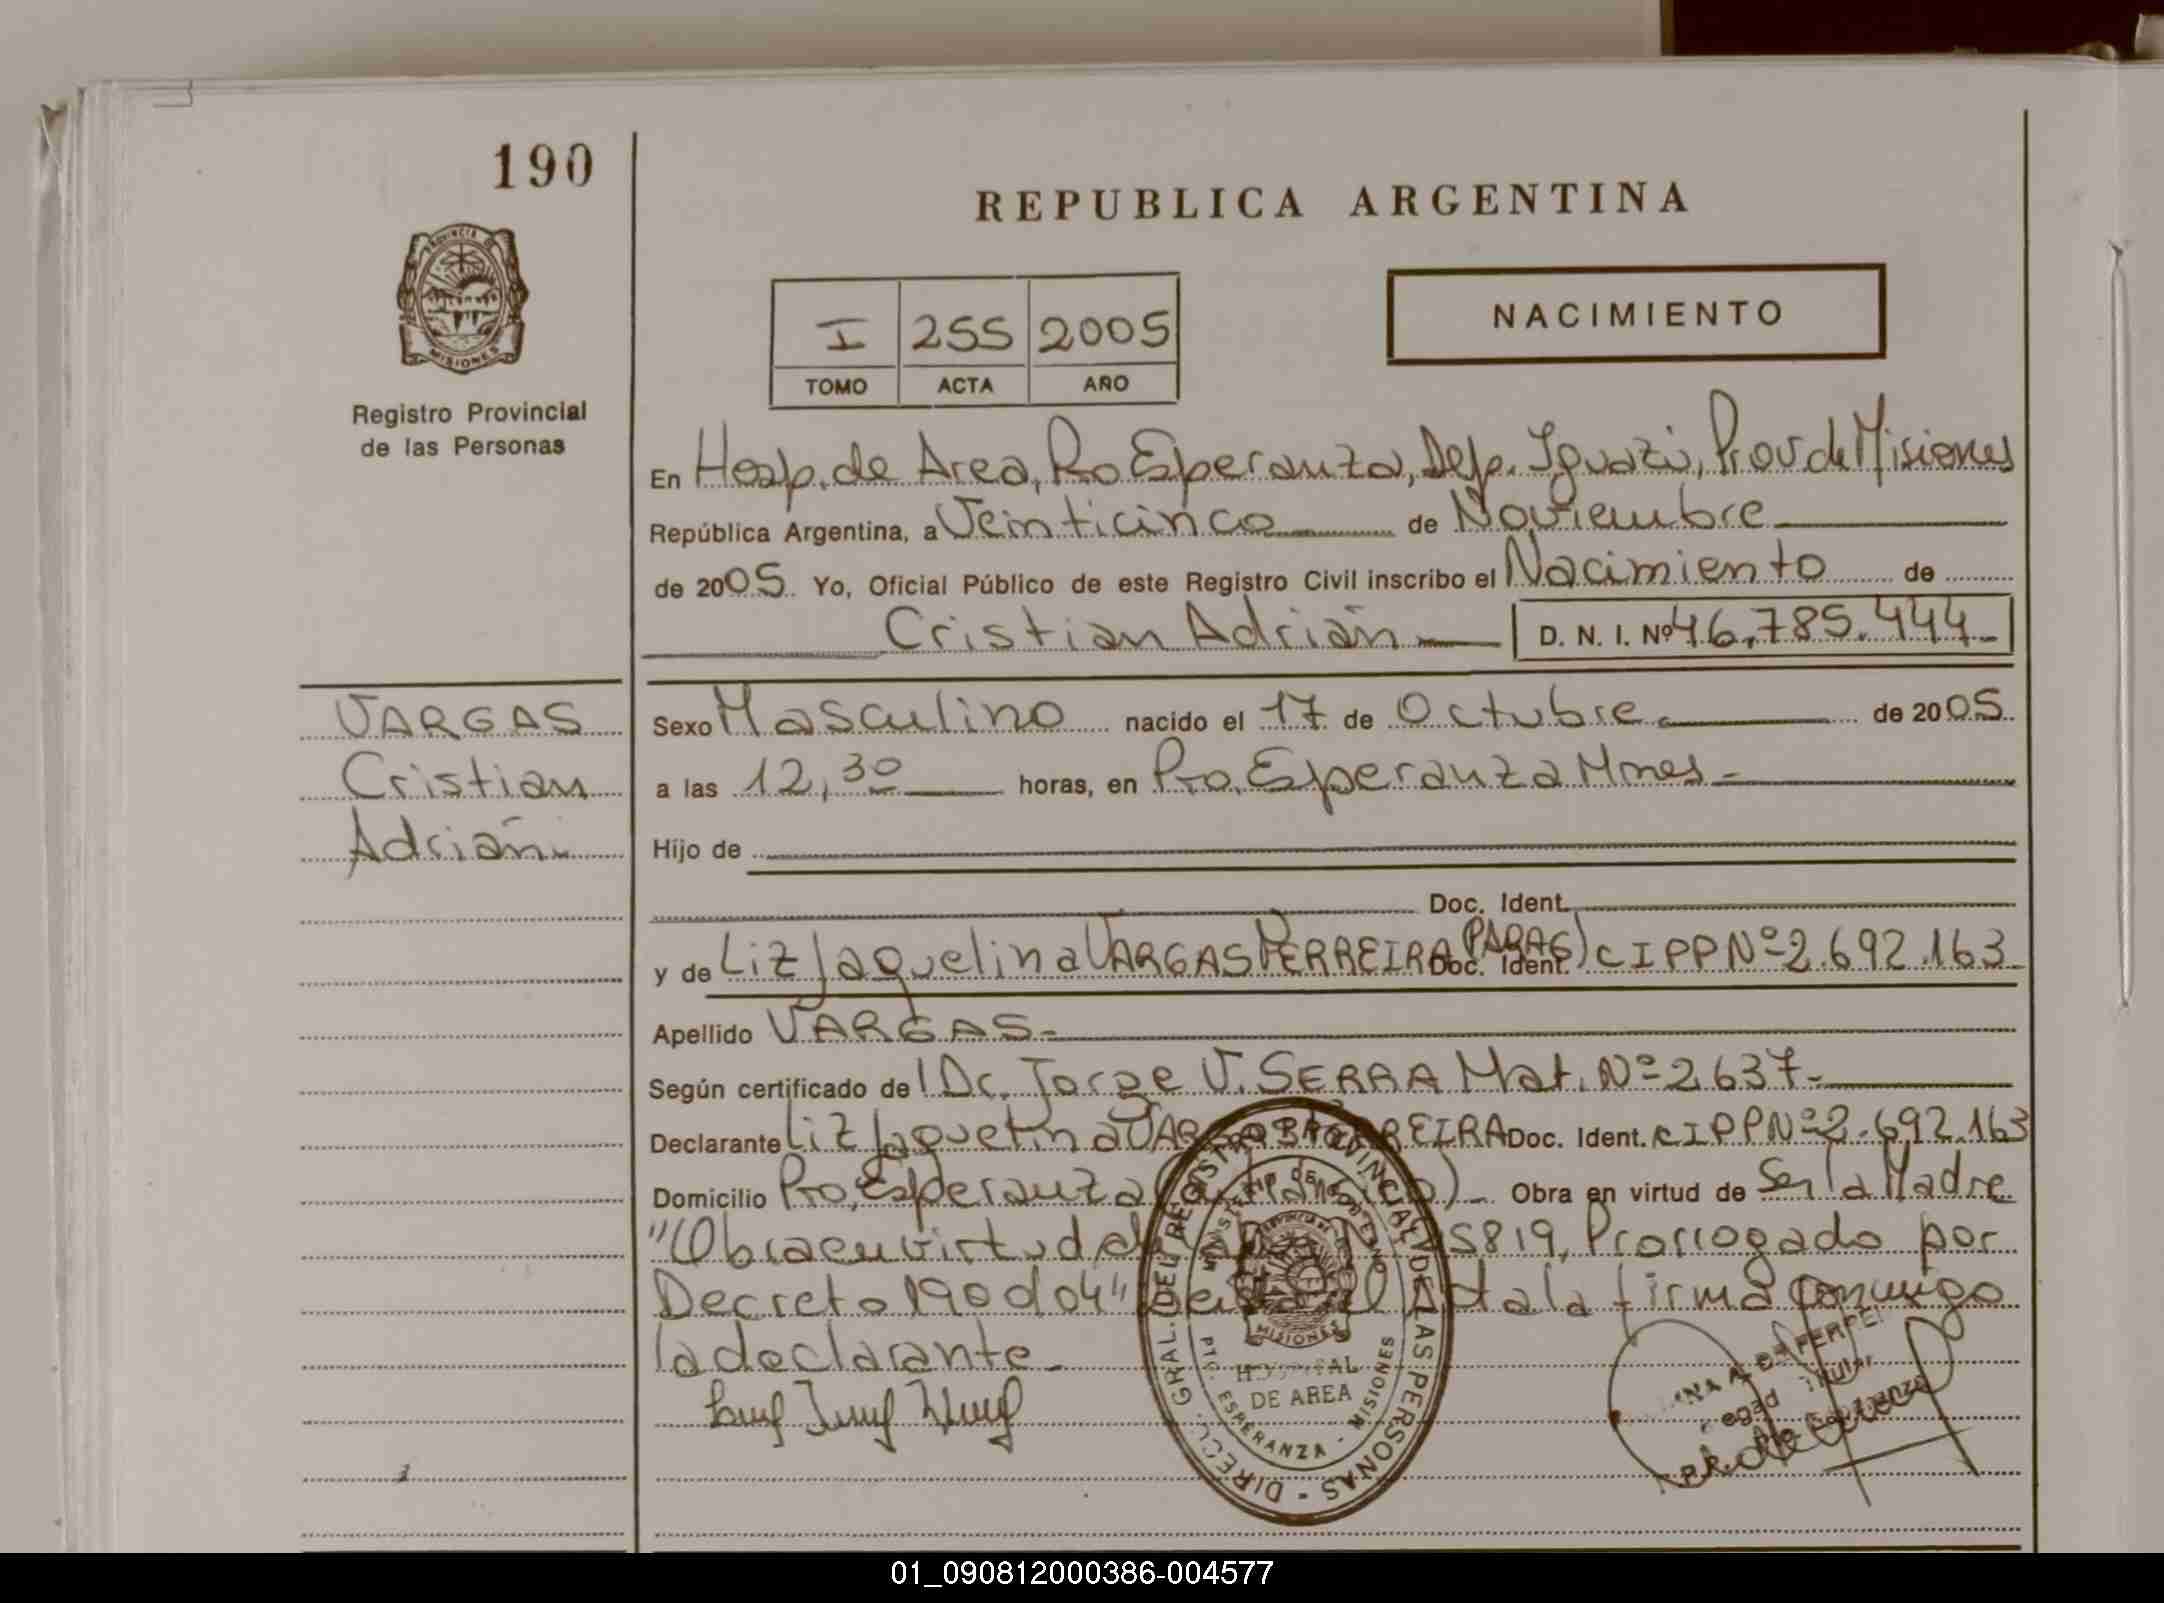 190
REPUBLICA ARGENTINA
PROVINCIA DE
MISIONES
Registro Provincial
de las Personas
I 255 2005
TOMO ACTA AÑO
NACIMIENTO
En Hosp. de Area, Pto Esperanza, Dep. Iguazú, Prov de Misiones
República Argentina, a Veinticinco de Noviembre
de 2005. Yo, Oficial Público de este Registro Civil inscribo el Nacimiento de
Cristian Adrián D. N. I. Nº 46.785.444
VARGAS
Cristian
Adrián
Sexo Masculino nacido el 17 de Octubre de 2005
a las 12,30 horas, en Pto. Esperanza Mnes-
Hijo de
Doc. Ident.
y de Liz Jaquelina VARGAS FERREIRA (PARAG) Doc. Ident. CIPP Nº 2.692.163
Apellido VARGAS-
Según certificado de Dr. Jorge V. SERRA Mat. Nº 2637-
Declarante Liz Jaquelina Doc. Ident. CIPP Nº 2.692.163
Domicilio Pto, Esperanza Obra en virtud de Ser la Madre
"Obra en virtud 5819, Prorrogado por
Decreto 190 d 04" la firma conmigo
la declarante-
DIRECC. GRAL. DEL REGISTRO PROVINCIAL DE LAS PERSONAS
MISIONES
HOSPITAL
DE AREA
PTO. ESPERANZA - MISIONES
01_090812000386-004577